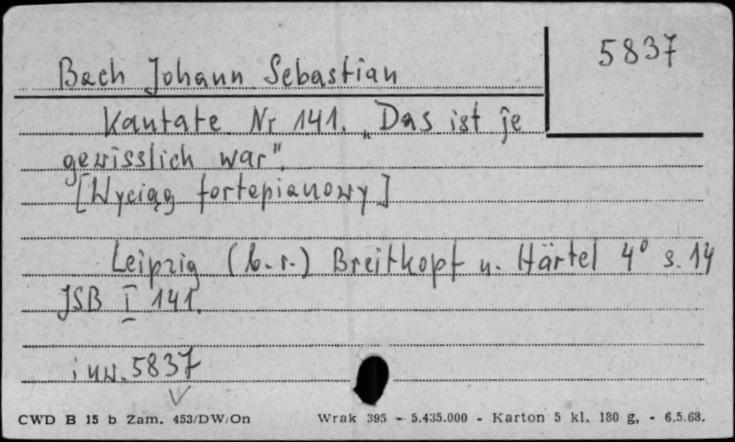 5837
Bach Johann Sebastian
Kantate Nr 141. „Das ist je
gewisslich war".
[Wyciąg fortepianowy]
Leipzig (b.r.) Breitkopf u. Härtel 4° s. 14
JSB I 141.
inw. 5837
CWD B 15 b Zam. 453/DW/On Wrak 395 - 5.435.000 - Karton 5 kl. 180 g, - 6.5.68.